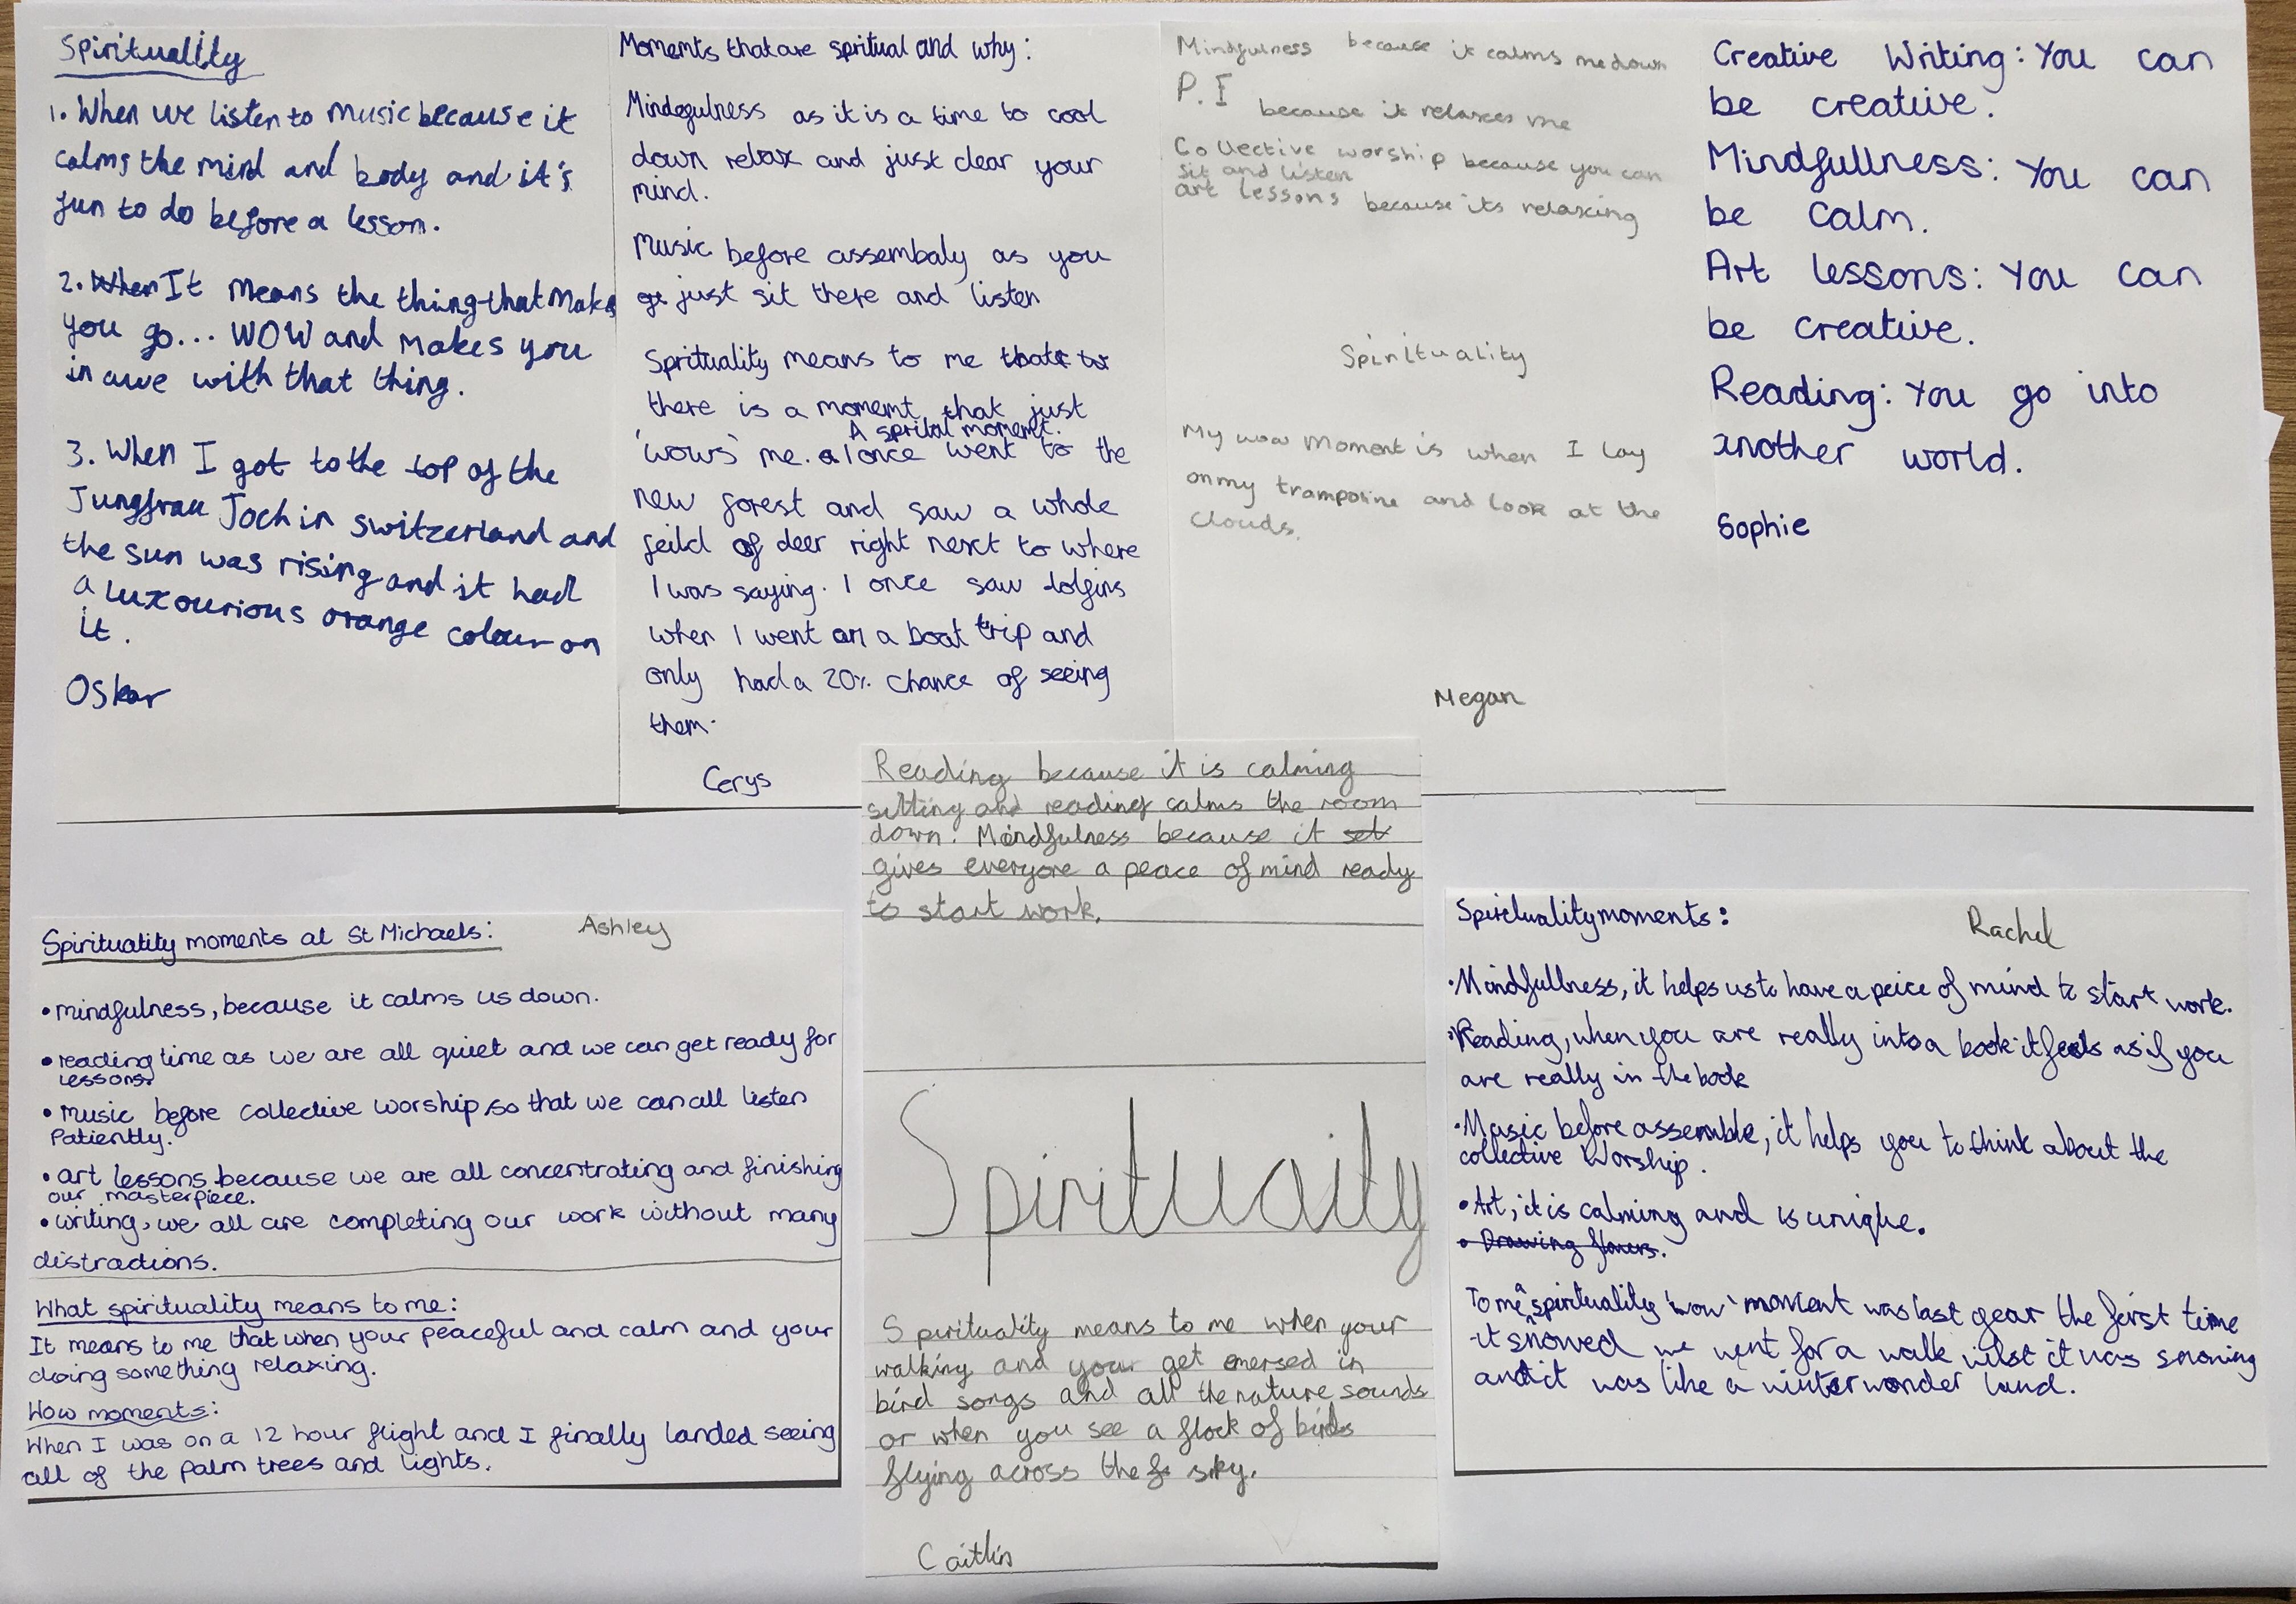 Spirituality
1. When we listen to music because it
calms the mind and body and it's
fun to do before a lesson.
2. When It means the thing that makes
you go... WOW and makes you
in awe with that thing.
3. When I got to the top of the
Jungfrau Joch in switzerland and
the sun was rising and it had
a luxourious orange colour on
it.
Oskar
Moments that are spritual and why:
Mindegulness as it is a time to cool
down relax and just clear your
mind.
Music before assembaly as you
just sit there and listen
Sprituality means to me
there is a momemt that just
A sprital moment.
'wows' me. I once went to the
new forest and saw a whole
feild of deer right next to where
I was saying. I once saw dolfins
when I went on a boat trip and
only had a 20% chance of seeing
them.
Cerys
Mindfulness because it calms me down
P.E because it relaxes me
Collective worship because you can
sit and listen
art lessons because its relaxing
Spirituality
My wow moment is when I lay
on my trampoline and look at the
clouds.
Megan
Creative Writing: You can
be creative.
Mindfullness: You can
be calm.
Art lessons: You can
be creative.
Reading: You go into
another world.
Sophie
Spirituality moments at St Michaels: Ashley
• mindfulness, because it calms us down.
• reading time as we are all quiet and we can get ready for
lessons.
• music before collective worship, so that we can all listen
Patiently.
• art lessons because we are all concentrating and finishing
our masterpiece.
• writing, we all are completing our work without many
distractions.
What spirituality means to me:
It means to me that when your peaceful and calm and your
doing something relaxing.
Wow moments:
When I was on a 12 hour flight and I finally landed seeing
all of the palm trees and lights.
Reading because it is calming
sitting and reading calms the room
down. Mindfulness because it set
gives everyone a peace of mind ready
to start work.
Spirituaity
Spirituality means to me when your
walking and your get emersed in
bird songs and all the nature sounds
or when you see a flock of birds
flying across the sky.
Caitlin
Spirituality moments: Rachel
• Mindfullness, it helps us to have a peice of mind to start work.
• Reading, when you are really into a book it feels as if you
are really in the book
• Music before assemble, it helps you to think about the
collective Worship.
• Art, it is calming and is unique.
• Drawing flowers.
To me spirituality 'wow' moment was last year the first time
it snowed we went for a walk wilst it was snowing
and it was like a winter wonder land.